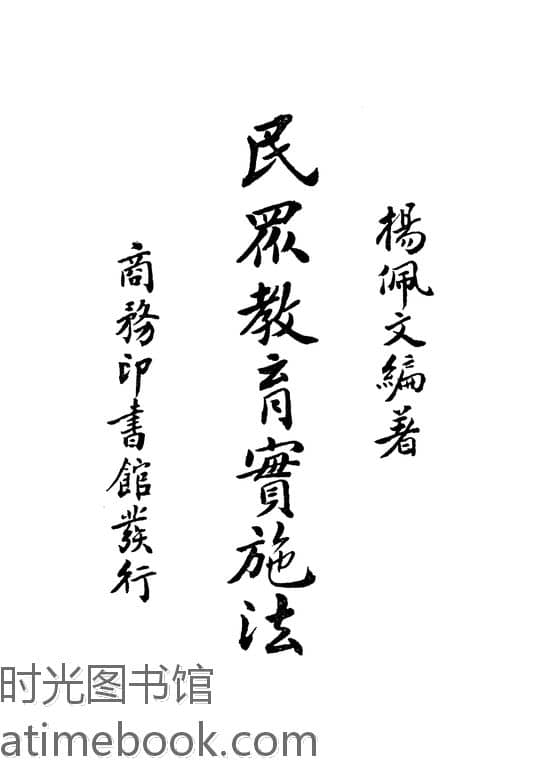 楊佩文編著
民眾教育實施法
商務印書館發行
时光图书馆
atimebook.com